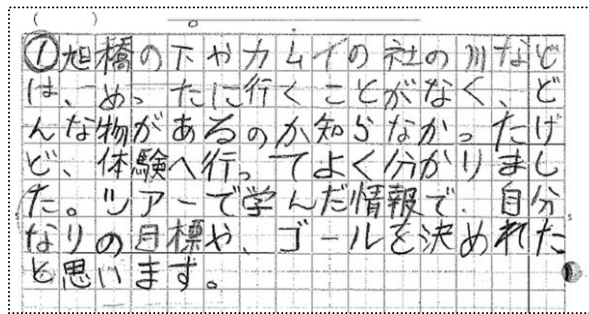 ①旭橋の下やカムイの社の川など
は、めったに行くことがなく、ど
んな物があるのか知らなかったけ
ど、体験へ行ってよく分かりまし
た。ツアーで学んだ情報で、自分
なりの目標や、ゴールを決めれた
と思います。